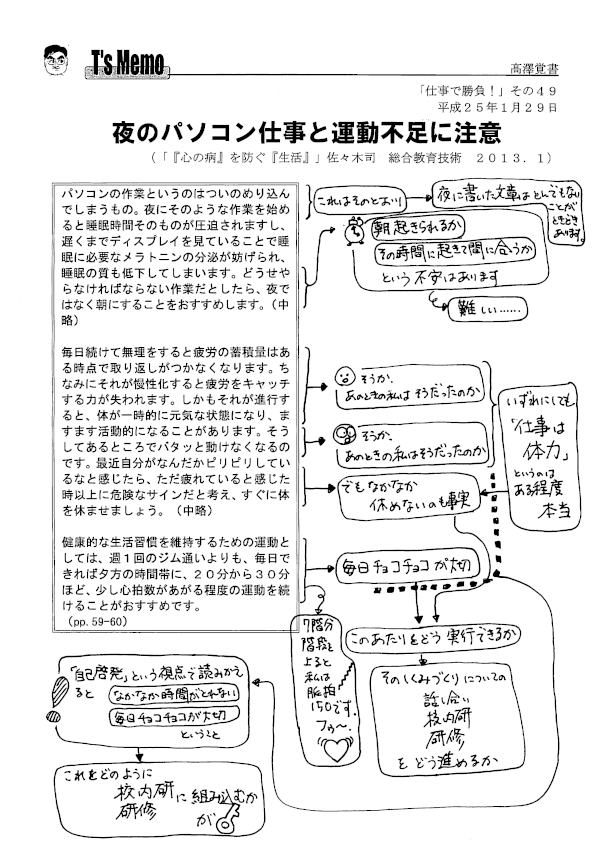 T's Memo
高澤覚書
「仕事で勝負！」その４９
平成２５年１月２９日
夜のパソコン仕事と運動不足に注意
（「『心の病』を防ぐ『生活』」佐々木司　総合教育技術　２０１３．１）
パソコンの作業というのはついのめり込ん
でしまうもの。夜にそのような作業を始め
ると睡眠時間そのものが圧迫されますし、
遅くまでディスプレイを見ていることで睡
眠に必要なメラトニンの分泌が妨げられ、
睡眠の質も低下してしまいます。どうせや
らなければならない作業だとしたら、夜で
はなく朝にすることをおすすめします。（中
略）
毎日続けて無理をすると疲労の蓄積量はあ
る時点で取り返しがつかなくなります。ち
なみにそれが慢性化すると疲労をキャッチ
する力が失われます。しかもそれが進行す
ると、体が一時的に元気な状態になり、ま
すます活動的になることがあります。そう
してあるところでバタッと動けなくなるの
です。最近自分がなんだかピリピリしてい
るなと感じたら、ただ疲れていると感じた
時以上に危険なサインだと考え、すぐに体
を休ませましょう。（中略）
健康的な生活習慣を維持するための運動と
しては、週１回のジム通いよりも、毎日で
きれば夕方の時間帯に、２０分から３０分
ほど、少し心拍数があがる程度の運動を続
けることがおすすめです。
（pp.59-60）
これはそのとおり
夜に書いた文章はとんでもない
ことが
ときどき
あります。
朝起きられるか
その時間に起きて間に合うか
という不安はあります
難しい……
そうか、
あのときの私はそうだったのか
そうか、
あのときの私はそうだったのか
でもなかなか
休めないのも事実
いずれにしても
「仕事は
体力」
というのは
ある程度
本当
毎日チョコチョコが大切
7階分
階段を
上ると
私は
脈拍
150です。
フゥ〜。
このあたりをどう実行できるか
そのしくみづくりについての
話し合い
校内研
研修
をどう進めるか
「自己啓発」という視点で読みかえ
ると
なかなか時間がとれない
毎日チョコチョコが大切
ということ
これをどのように
校内研
研修
に組み込むか
が